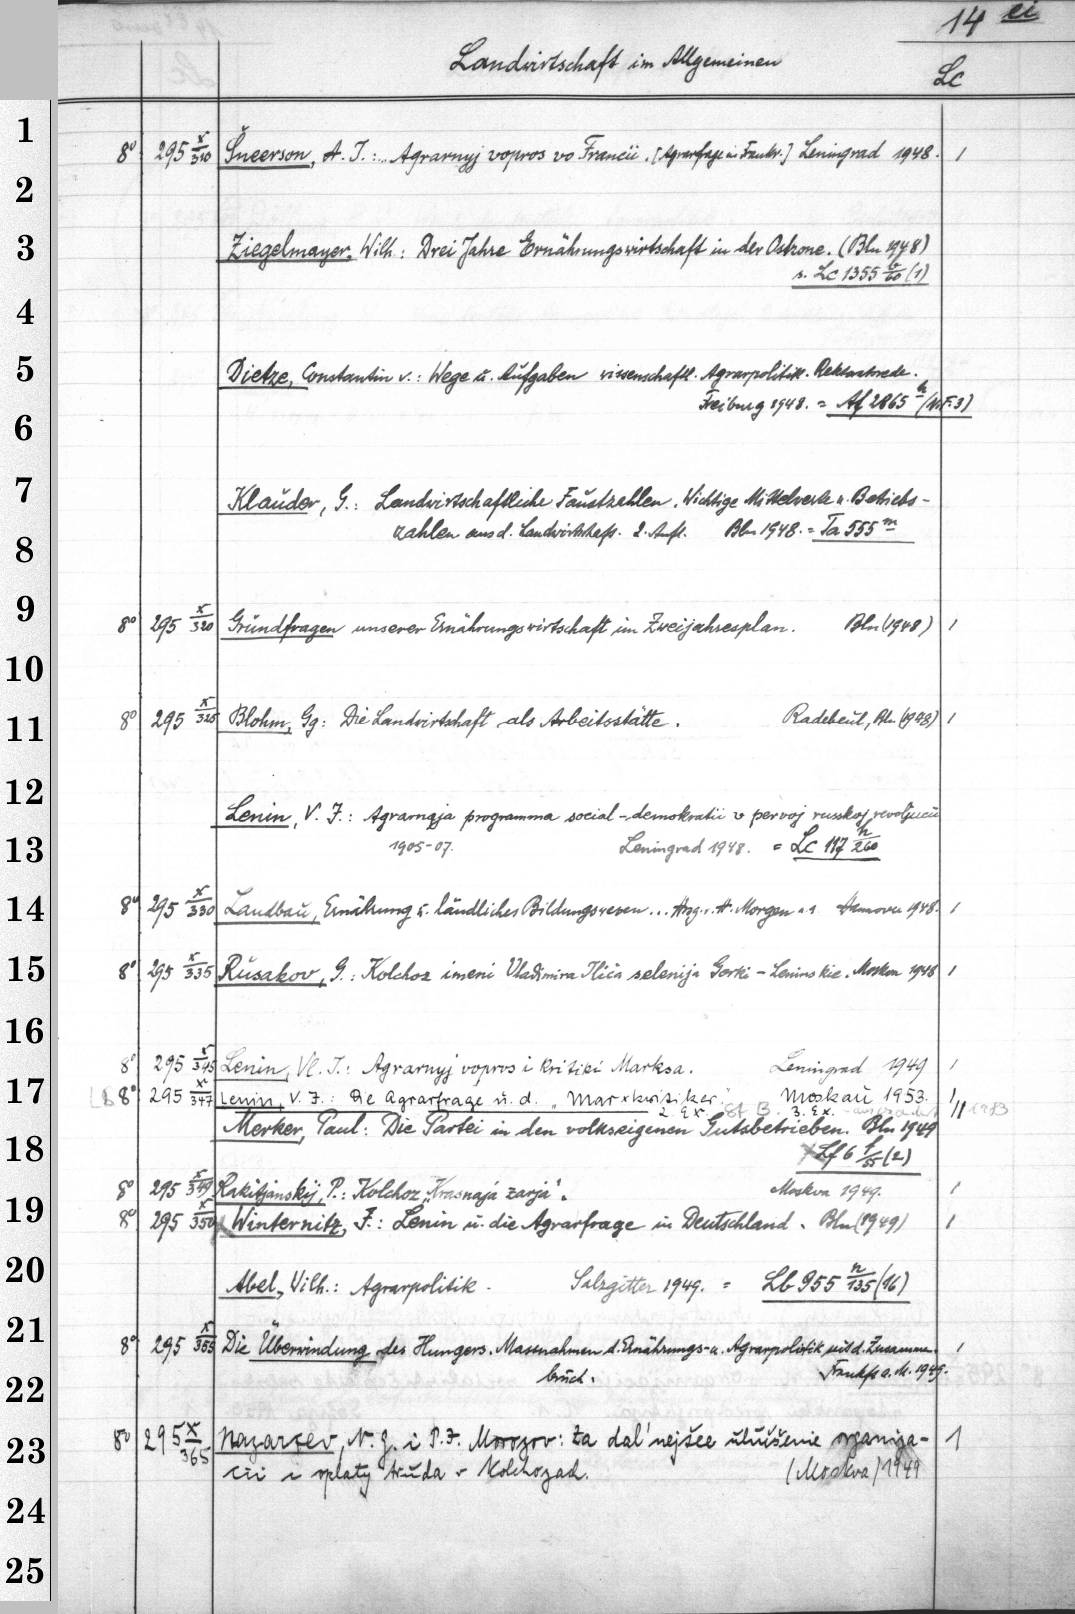 14 ei
Landwirtschaft im Allgemeinen
Lc
1
8° 295 x/310 Šneerson, A. I.: Agrarnyj vopros vo Francii. [Agrarfrage in Frankr.] Leningrad 1948. 1
2
3
Ziegelmayer, Wilh.: Drei Jahre Ernährungswirtschaft in der Ostzone. (Bln 1948)
s. Lc 1355 b/60 (1)
4
5
Dietze, Constantin v.: Wege u. Aufgaben wissenschaftl. Agrarpolitik. Rektoratsrede.
Freiburg 1948. = Af 2865 h (N.F. 3)
6
7
Klauder, G.: Landwirtschaftliche Faustzahlen. Wichtige Mittelwerte u. Betriebs-
zahlen aus d. Landwirtschaft. 2. Aufl. Bln 1948. = Ta 555 m
8
9
8° 295 x/320 Grundfragen unserer Ernährungswirtschaft im Zweijahresplan. Bln (1948) 1
10
8° 295 x/325 Blohm, Gg: Die Landwirtschaft als Arbeitsstätte. Radebeul, Bln (1948) 1
11
12
Lenin, V. I.: Agrarnaja programma social-demokratii v pervoj russkoj revoljucii
1905-07. Leningrad 1948. = Lc 117 n/260
13
14
8° 295 x/330 Landbau, Ernährung u. ländliches Bildungswesen... Hrsg. v. H. Morgen u. a. Hannover 1948. 1
15
8° 295 x/335 Rusakov, G.: Kolchoz imeni Vladimira Iliča selenija Gorki - Leninskie. Moskva 1948 1
16
8° 295 x/345 Lenin, Vl. I.: Agrarnyj vopros i kritiki Marksa. Leningrad 1949 1
17
LB 8° 295 x/347 Lenin, V. I.: Die Agrarfrage u. d. "Marxkritiker." Moskau 1953. 1/11
2. Ex. St B. 3. Ex.
Merker, Paul: Die Partei in den volkseigenen Gutsbetrieben. Bln 1949
Lf 6 f/55 (2)
18
8° 295 x/349 Rakitjanskij, P.: Kolchoz "Krasnaja zarja". Moskva 1949. 1
19
8° 295 x/350 Winternitz, J.: Lenin u. die Agrarfrage in Deutschland. Bln (1949) 1
20
Abel, Wilh.: Agrarpolitik. Salzgitter 1949. = Lb 955 n/135 (16)
21
8° 295 x/355 Die Überwindung des Hungers. Massnahmen d. Ernährungs- u. Agrarpolitik seit d. Zusammen- 1
bruch. Frankft a. M. 1949.
22
23
8° 295 x/365 Nazarcev, N. J. i P. F. Morozov: Za dal'nejšee ulučšenie organiza- 1
cii i oplaty truda v Kolchozach. (Moskva) 1949
24
25